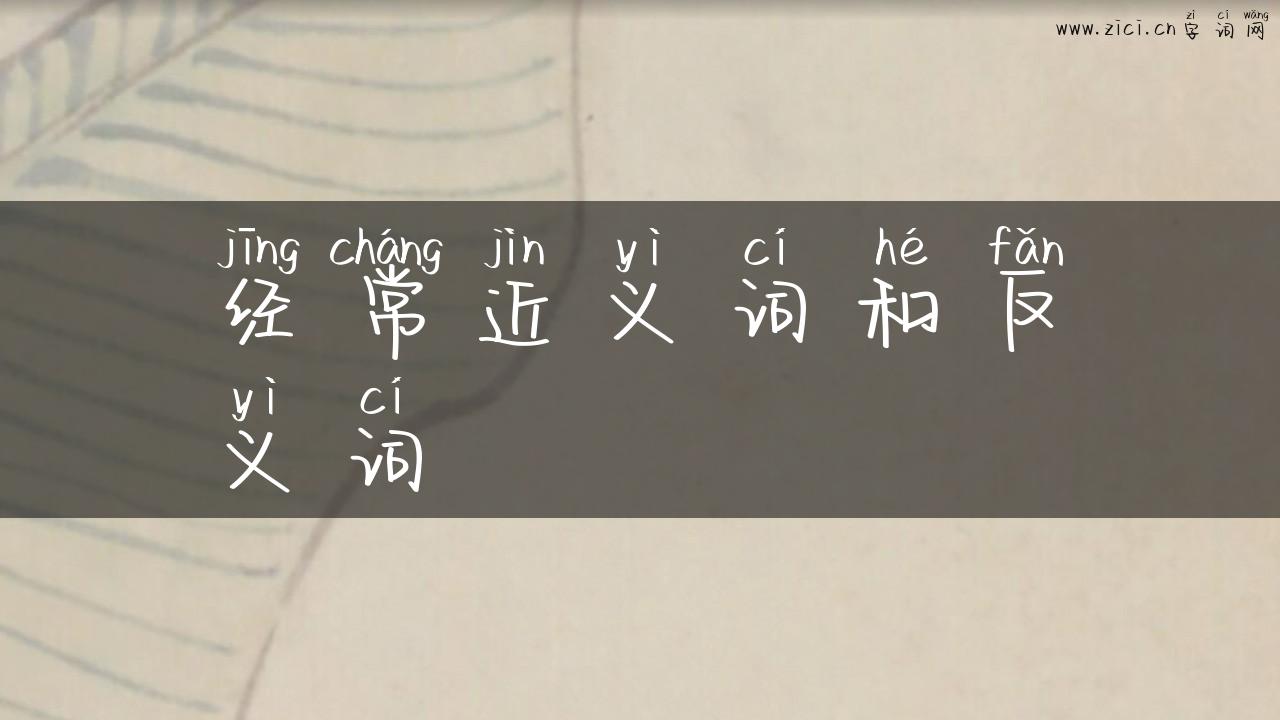 www.zici.cn 字词网
zì cí wǎng
jīng cháng jìn yì cí hé fǎn
经常近义词和反
yì cí
义词